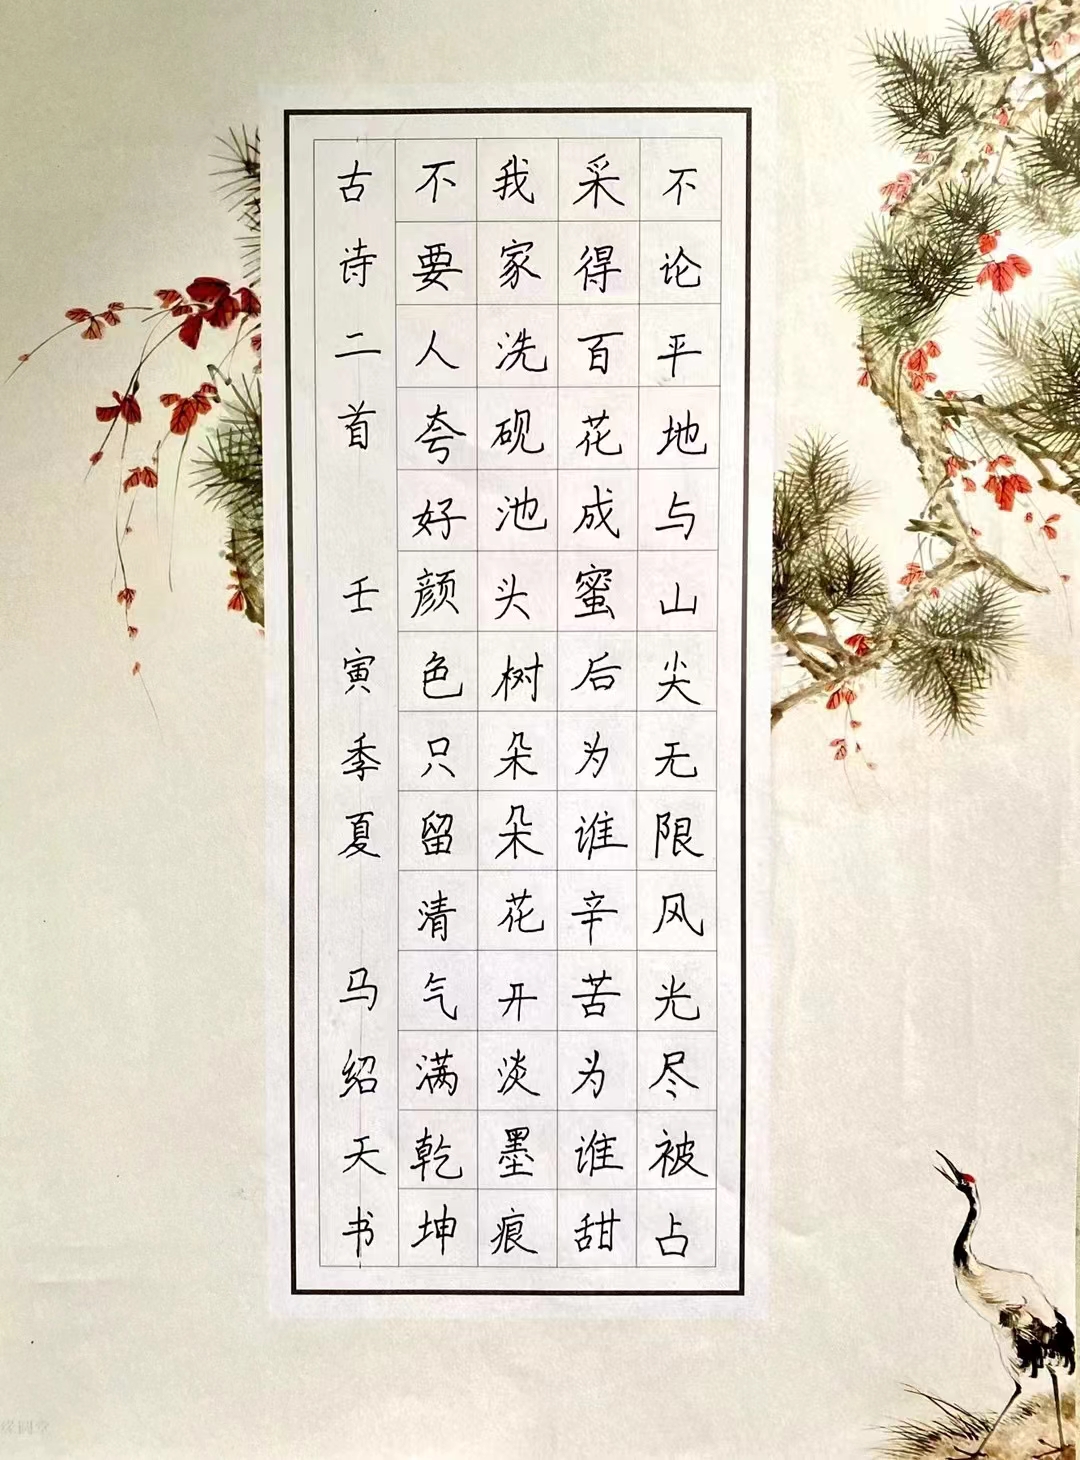 不论平地与山尖无限风光尽被占
采得百花成蜜后为谁辛苦为谁甜
我家洗砚池头树朵朵花开淡墨痕
不要人夸好颜色只留清气满乾坤
古诗二首 壬寅季夏 马绍天书